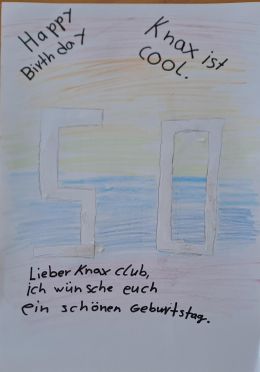 Happy
Birthday
Knax ist
cool.
50
Lieber Knax club,
ich wünsche euch
ein schönen Geburtstag.